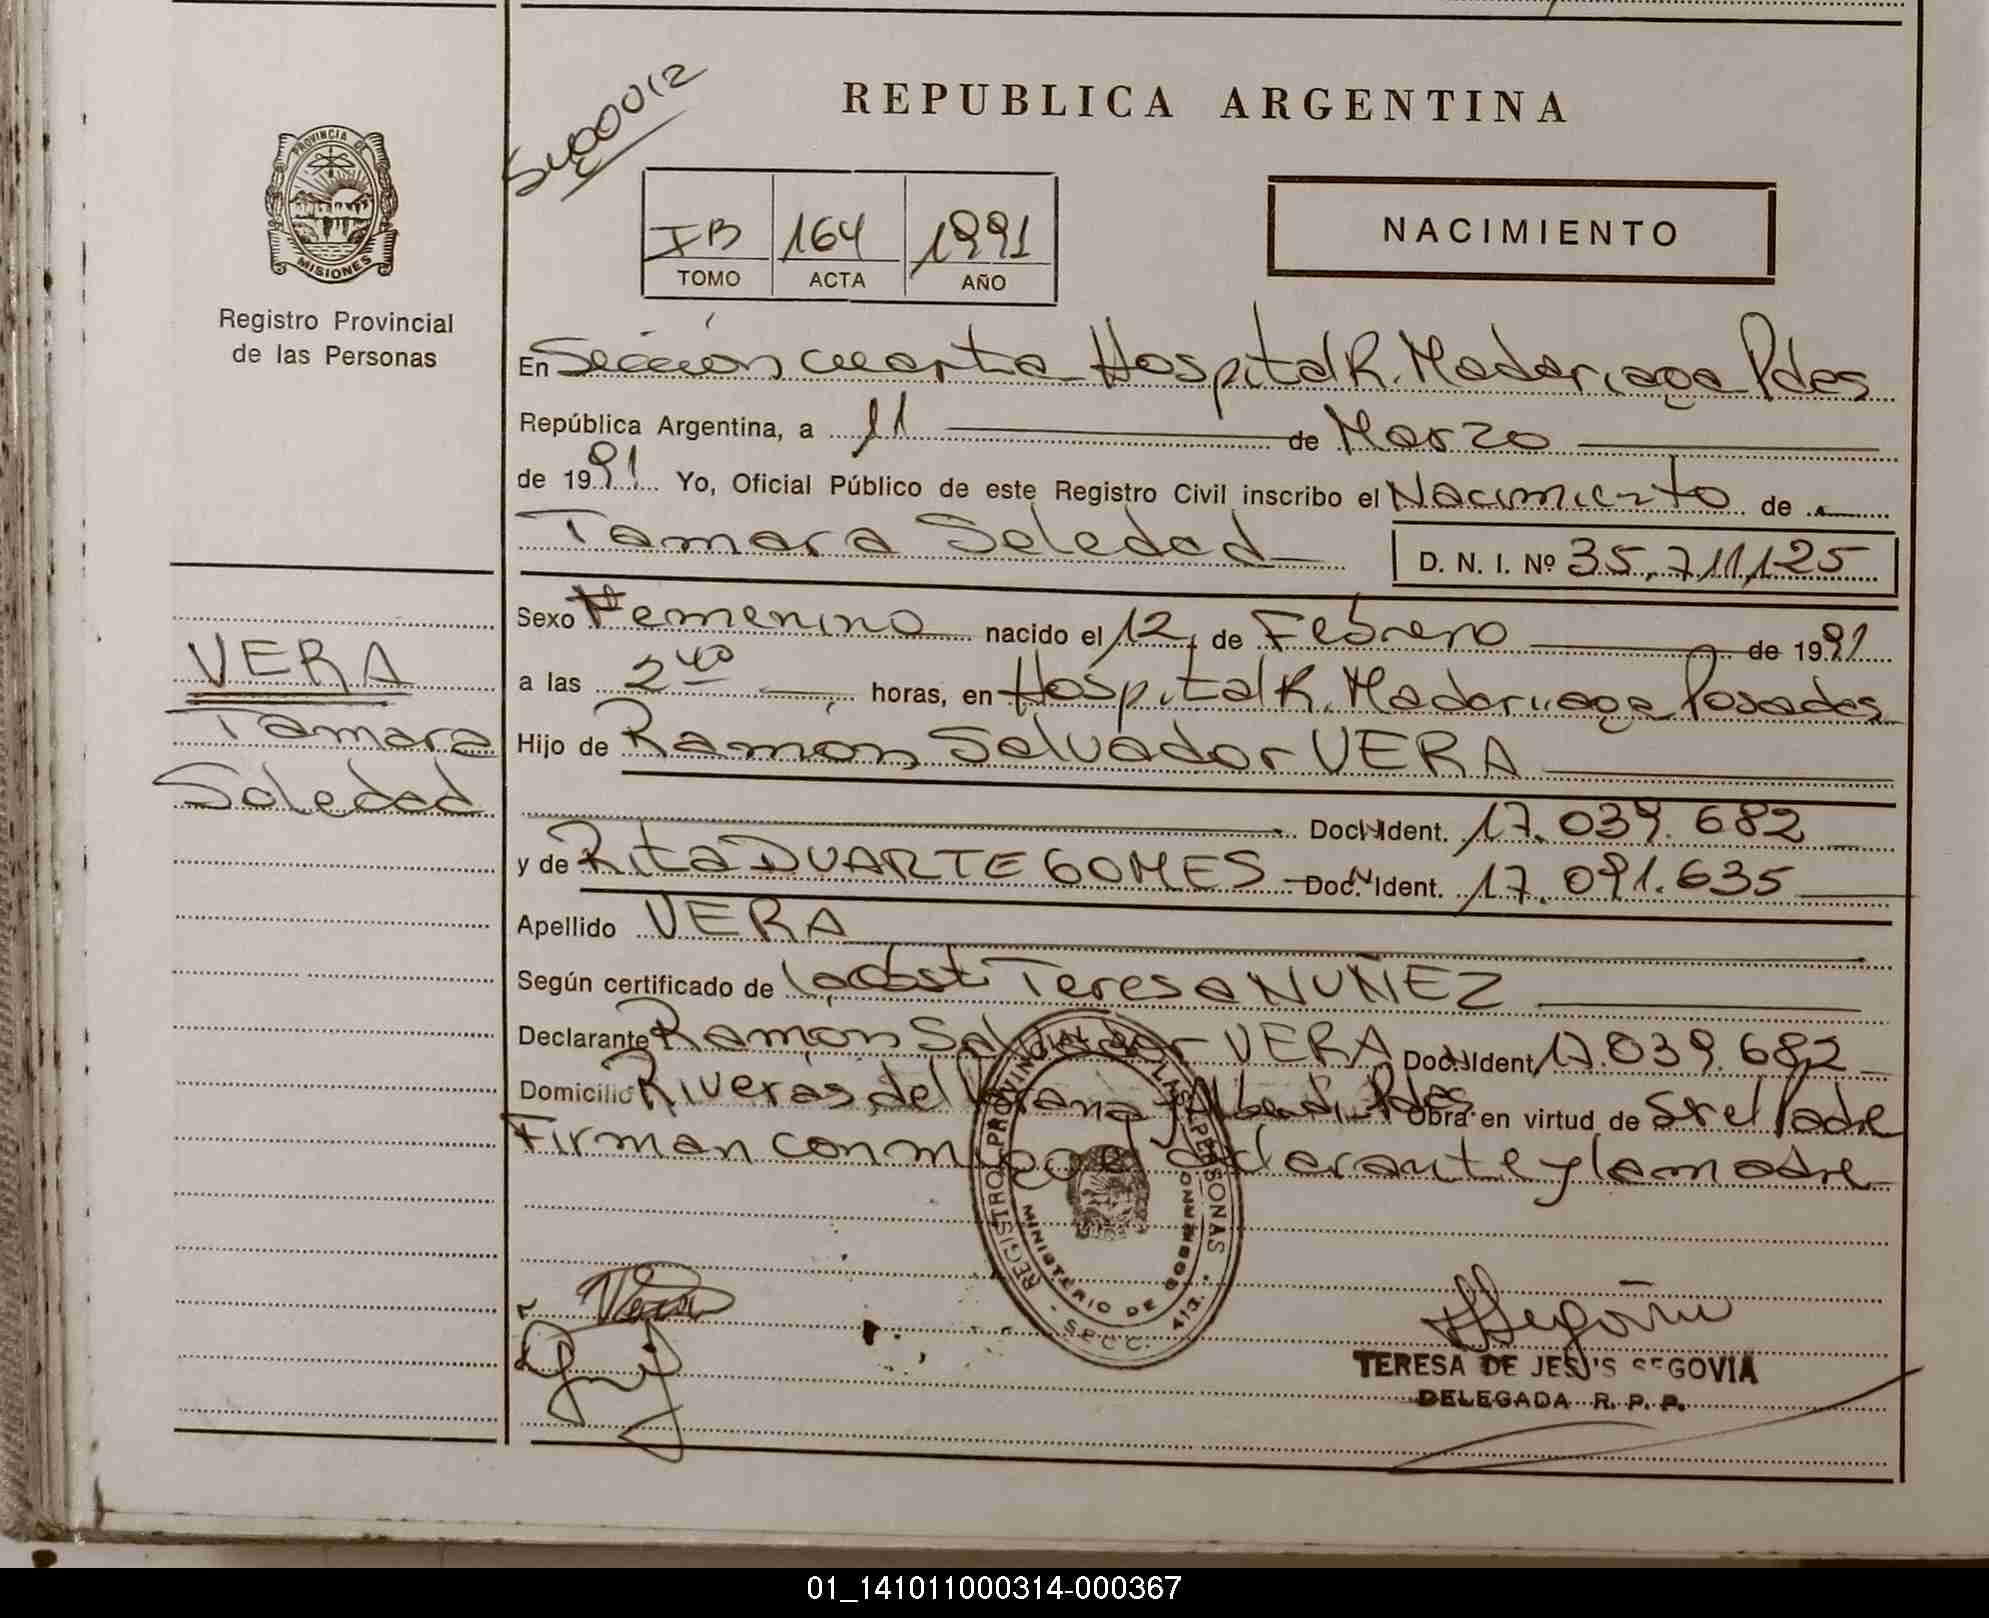 REPUBLICA ARGENTINA
PROVINCIA DE
MISIONES
Registro Provincial
de las Personas
IB 164 1991
TOMO ACTA AÑO
NACIMIENTO
En Sección cuarta Hospital R. Madariaga Pdas
República Argentina, a 11 de Marzo
de 1991 Yo, Oficial Público de este Registro Civil inscribo el Nacimiento de
Tamara Soledad D. N. I. Nº 35.711.125
VERA
Tamara
Soledad
Sexo Femenino nacido el 12 de Febrero de 1991
a las 2 40 horas, en Hospital R. Madariaga Posadas
Hijo de Ramón Salvador VERA
Doc. N Ident. 17.039.682
y de Rita DUARTE GOMES Doc. N Ident. 17.091.635
Apellido VERA
Según certificado de la obst. Teresa NUÑEZ
Declarante Ramón Salvador VERA Doc. N Ident. 17.039.682
Domicilio Riveras del Parana y Alberdi Pdas. Obra en virtud de Sr el Padre
Firman conmigo el declarante y la madre
REGISTRO PROVINCIAL DE LAS PERSONAS
MINISTERIO DE GOBIERNO
Vera
TERESA DE JESUS SEGOVIA
DELEGADA R. P. P.
01_141011000314-000367